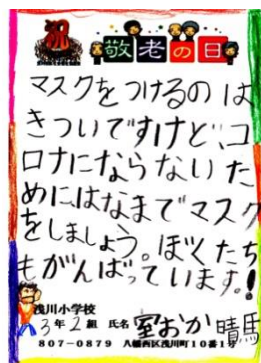 祝 敬老の日
マスクをつけるのは
きついですけど、コ
ロナにならないた
めにはなまでマスク
をしましょう。ぼくたち
もがんばっています。!
浅川小学校
3年2組 氏名 室おか晴馬
807-0879 八幡西区浅川町10番1号